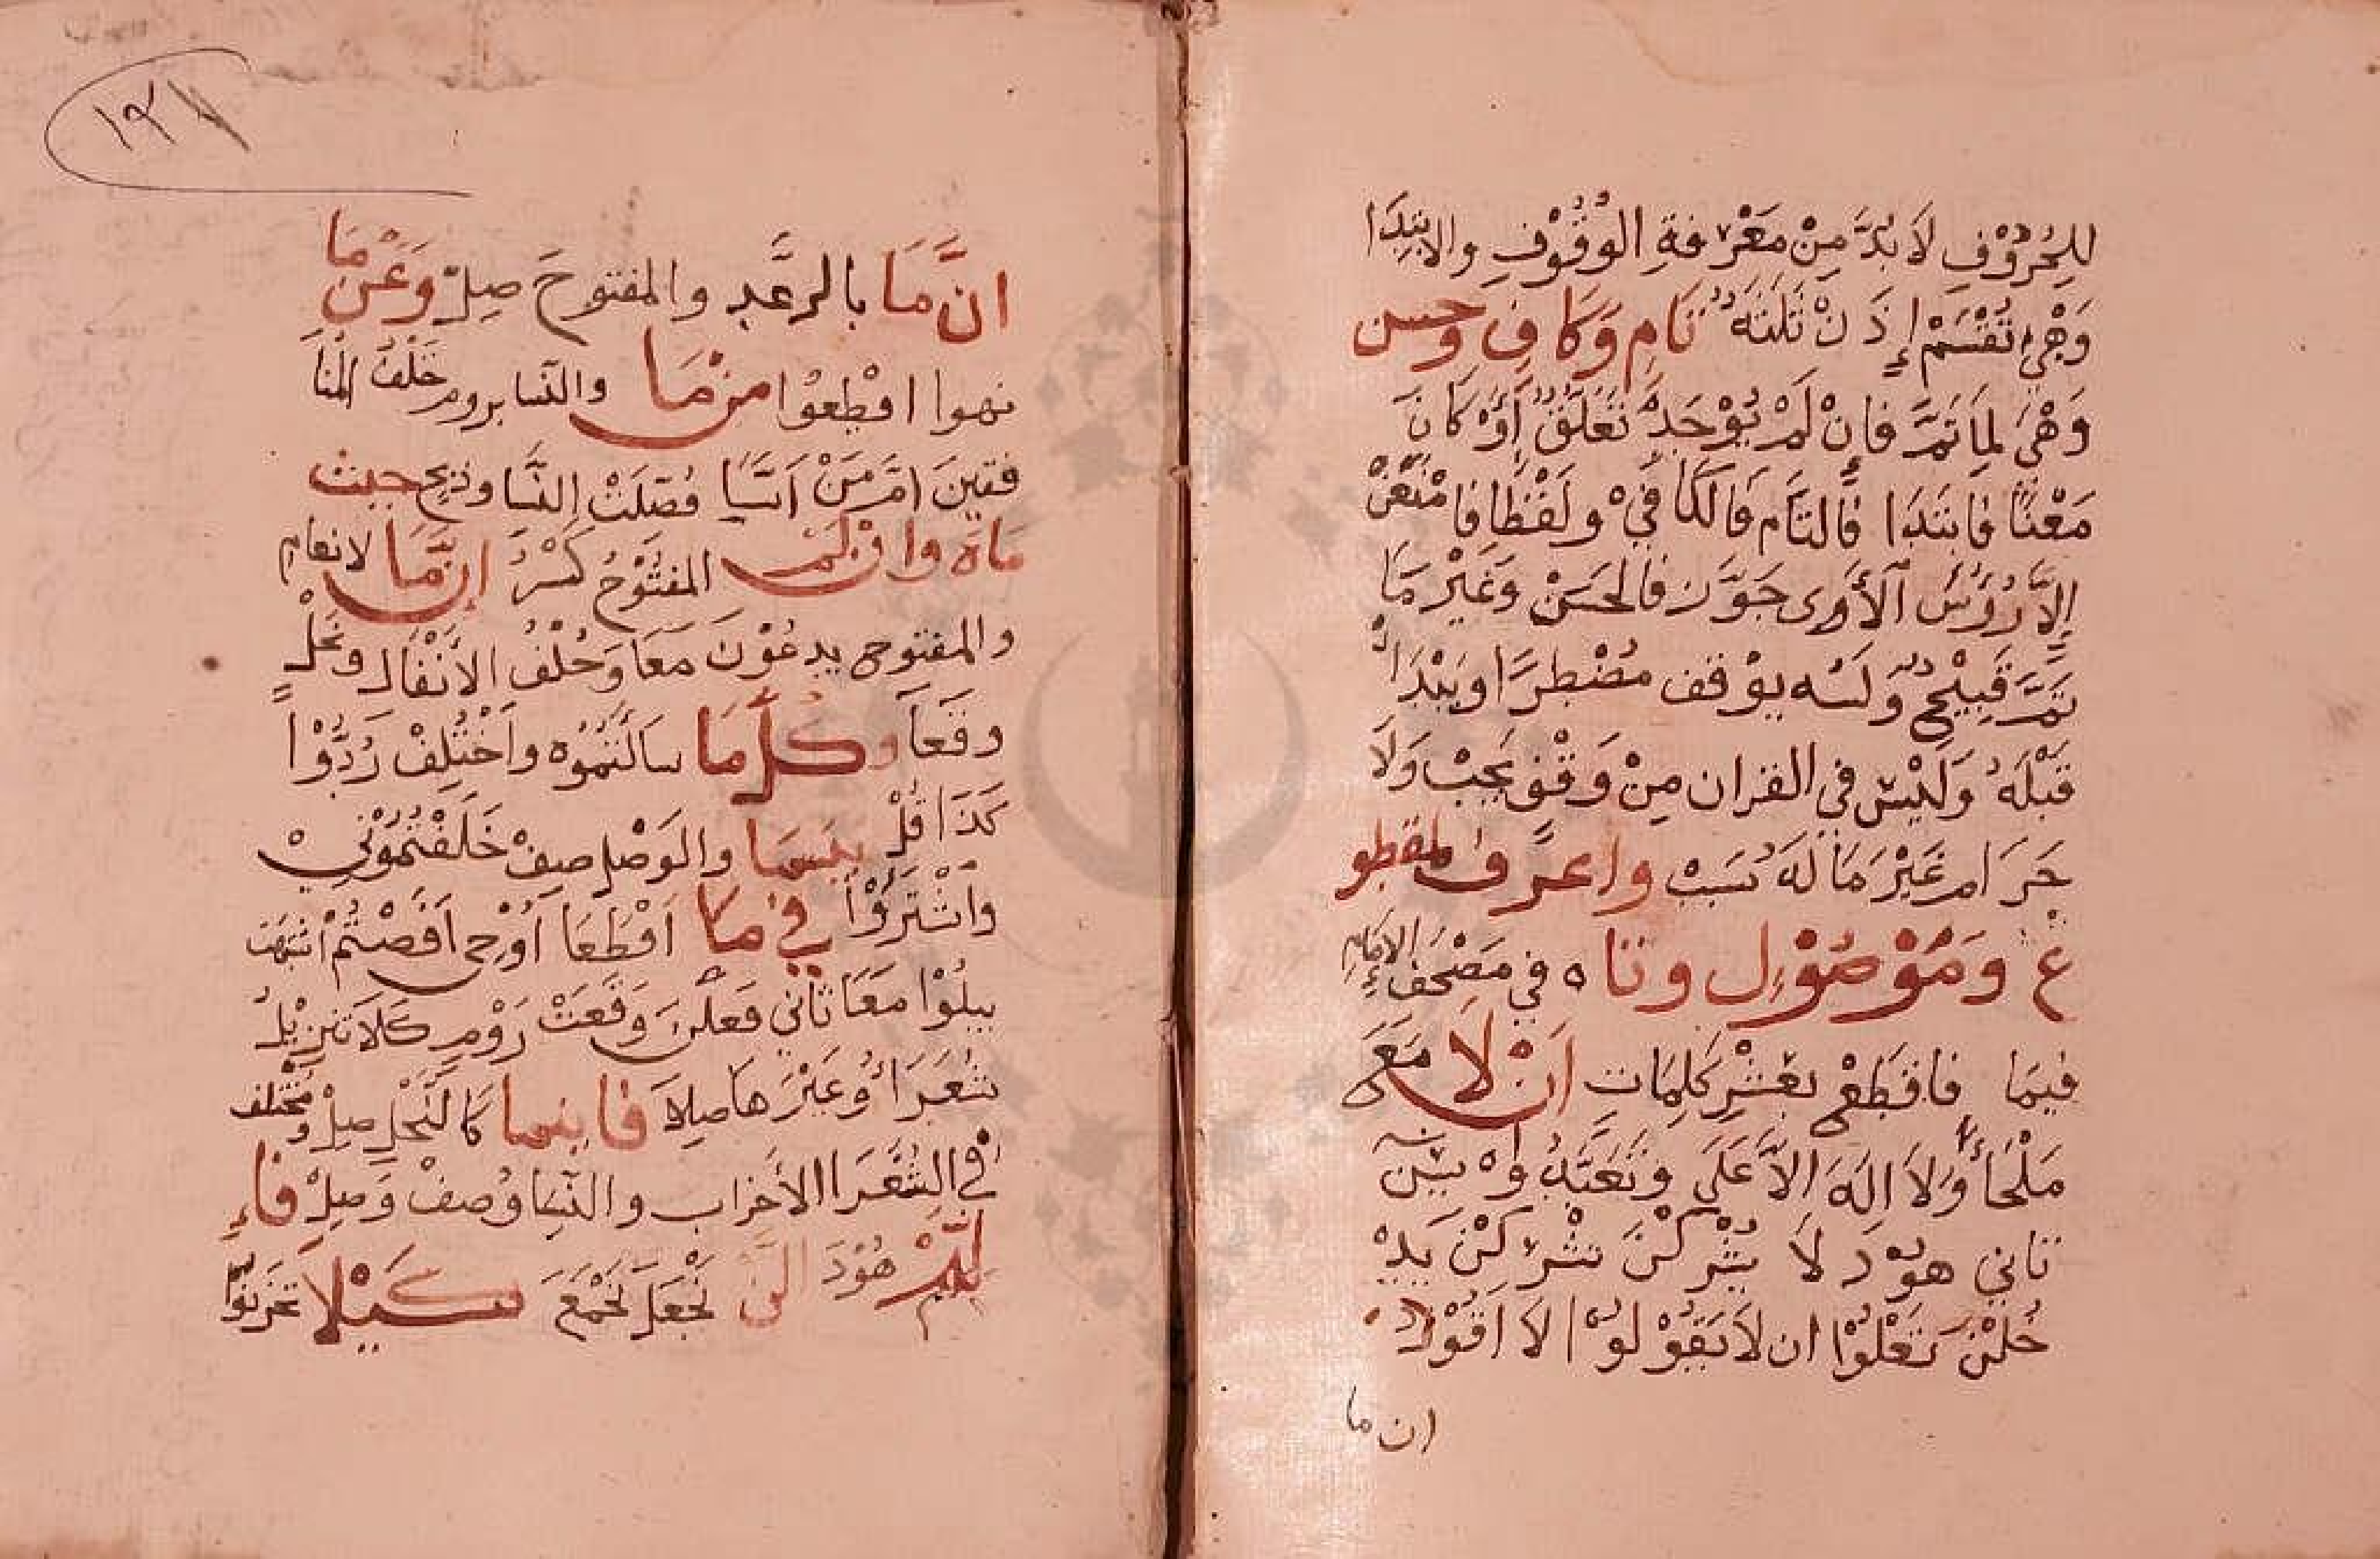 للحُرُوْفِ لَا بُدَّ مِنْ مَعْرِفةِ الوُقُوْفِ والابتِدَا
وَهْيَ تُقْسَمْ إِذَنْ ثَلَثَةٌ تَامٍ وَكَافٍ وحسن
وَهْيَ لِمَا تَمَّ فَإِنْ لَمْ يُوْجَدِ تَعَلُّقٌ أَوْ كَانَ
مَعْنًا فابتَدَا فَالتَّام فَالكَافِيْ ولَفْظًا فامْنَعَنْ
إِلَّا رُؤُسَ الأَوى جَوَّز فالحَسَنْ وَغَيْر مَا
تَمَّ قَبِيْحٌ وَلَه يوْقف مُضْطرًا ويَبْدَا
قَبْلَهُ وَلَيْسَ في القران مِنْ وَقْفٍ يَجِبْ وَلَا
حَرَام غَيْرَ مَا لَهُ سَبَبْ واعرف لمقطو
ع وَمَوْصُوْلٍ وتا ه في مَصْحَفِ الإمَامِ
فيمَا فاقْطَعْ بعَشْرِ كَلِمَاتٍ اَنْ لَا مَعَ
مَلْجَأٍ وَلَا اِلَهَ اِلَّا
ثاني هوْد لَا يُشْرِكْنَ تُشْرِكْ يَدْ
خُلْنَ تَعْلُوْا ان لَا يَقُوْلُوْا لَا اَقُوْلَ
ان ما
١٢٧
انَّ مَا بالرَّعْدِ والمفتوحَ صِلْ وَعَنْ مَا
نهوا اقْطعُوْا مِنْ مَا والنّسا بروم خَلْفُ المُنَا
فقينَ اَمْ مَنْ اَسَّسَا فُصّلَتْ النِّسَا وذبح حيث
مَا وان لَمْ المفتُوْحُ كَسْرُ اِنَّ مَا لانعام
والمفتوح يدعُوْنَ مَعَا وَخُلْفُ الاَنْفَال ونَحْلٍ
وقَعَا وكُلِّ مَا سالتُمُوْه واخْتُلِفْ رُدُّوْا
كَذَا قُلْ بئسما والوَصْل صِفْ خَلَفْتُمُوْنيْ
واشْتَرَوْا في مَا اقْطَعَا اُوْحِي اَفَضْتُمْ اشتهت
يبلُوْا مَعَا ثَاني فعلن وَقَعَتْ رُوْم كَلَا تنزيْلُ
شُعَرَاءُ وغَيْرَهَا صِلَا فاينما كَالنَّحْل صِلْ ومُخْتلف
في الشُّعَرَا الأَحْزاب والنِّسَا وُصفْ وَصِلْ فاءِ
لَّمْ هُوْدَ النْ نَجْعَلَ نَجْمَعَ كَيْلَا تَحْزَنُوْا